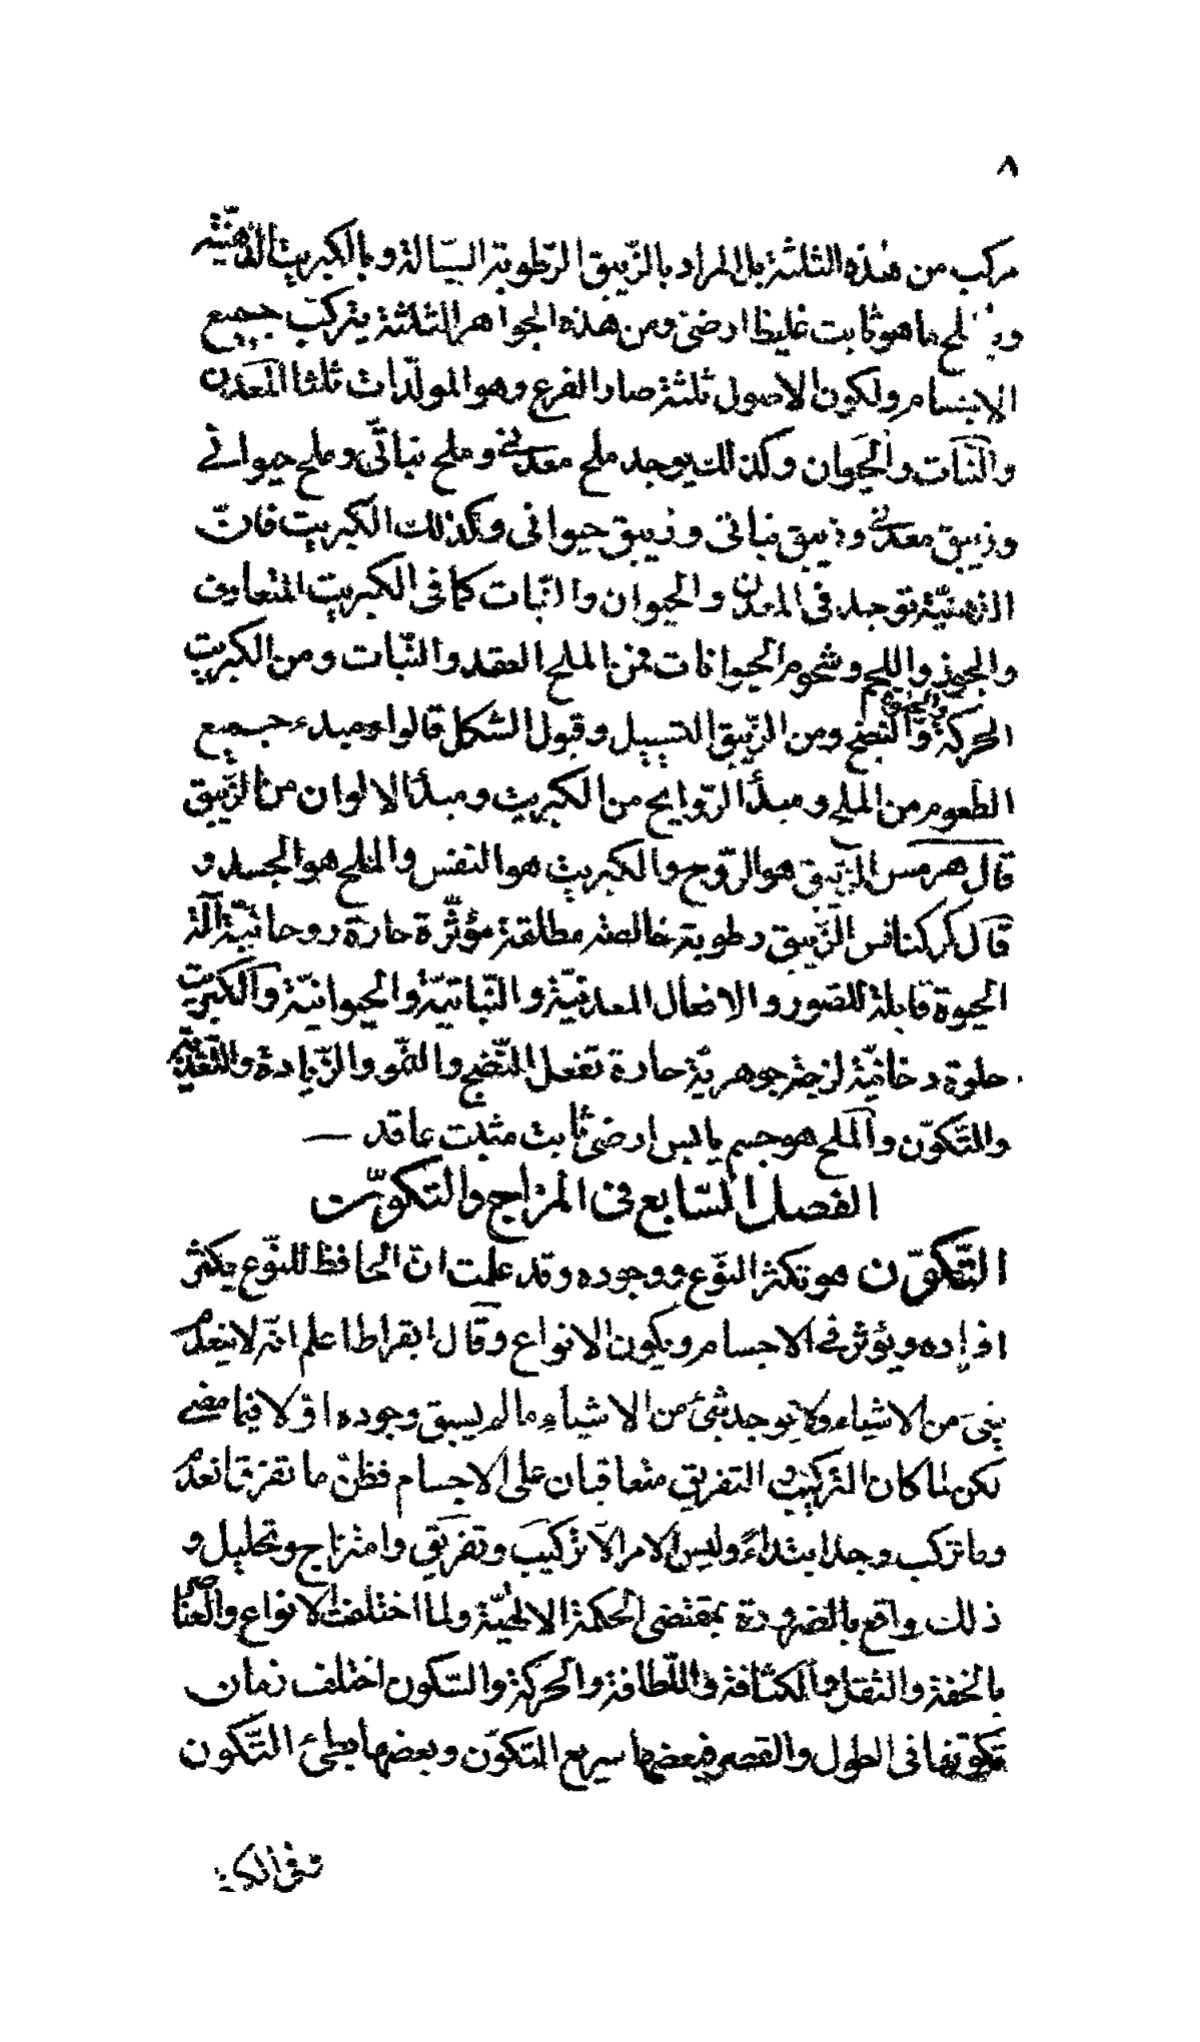 ٨
مركب من هذه الثلثة بل المراد بالزّيبق الرّطوبة السيّالة وبالكبريت الدّهنيّة
ما هو ثابت غليظ ارضىّ ومن هذه الجواهر الثلثة يتركّب جميع
الاجسام ولكون الاصول ثلثة صار الفرع وهو المولّدات ثلثا المعدن
والنّبات والحَيوان وكذلك يوجد ملح معدنىّ وملح نباتىّ وملح حيوانى
وزيبق معدنىّ وزيبق نباتى وزيبق حيوانى وكذلك الكبريت فانّ
الدّهنيّة توجد فى المعدن والحيوان والنّبات كما فى الكبريت المتعارف
والجوز واللحم وشحوم الحيوانات فمن الملح العقد والثّبات ومن الكبريت
الحركة والنضج ومن الزّيبق التسييل وقبول الشكل قالوا ومبدء جميع
الطعوم من الملح ومبدأ الرّوايح من الكبريت ومبدأ الالوان من الزّيبق
قال هرمس الزّيبق هو الرّوح والكبريت هو النفس والملح هو الجسد و
قال الزّيبق رطوبة خالصة مطلقة مؤثّرة حارة روحانيّة آلة
الحيوة قابلة للصور والافعال المعدنيّة والنّباتيّة والحيوانيّة والكبريت
حلوة دخانيّة لزجة جوهريّة حارة تفعل النّضج والنّمو والزّيادة والتّغذية
والتّكوّن والملح هو جسم يابس ارضىّ ثابت مثبت عاقد —
الفصل السّابع فى المزاج والتكوّن
التّكوّن هو تكثر النوّع ووجوده وقد علمت انّ الحافظ للنوّع يكثر
افراده ويؤثر فى الاجسام وتكون الانواع وقال ابقراط اعلم انّه لا ينعدم
شئ من الاشياء ولا يوجد شئ من الاشياء ما لم يسبق وجوده اوّلا فيما مضى
لكن لما كان التركيب و التفريق متعاقبان على الاجسام فظنّ ما تفرق انعدم
وما تركب وجد ابتداءً وليس الامر الّا تركيب وتفريق وامتزاج وتحليل و
ذلك واقع بالضرورة بمقتضى الحكمة الالهيّة ولما اختلفت الانواع والعناصر
بالخفة والثقل والكثافة واللّطافة والحركة والسّكون اختلف زمان
تكوّنها فى الطول والقصر فبعضها سريع التكوّن وبعضها بطئ التّكون
وفى